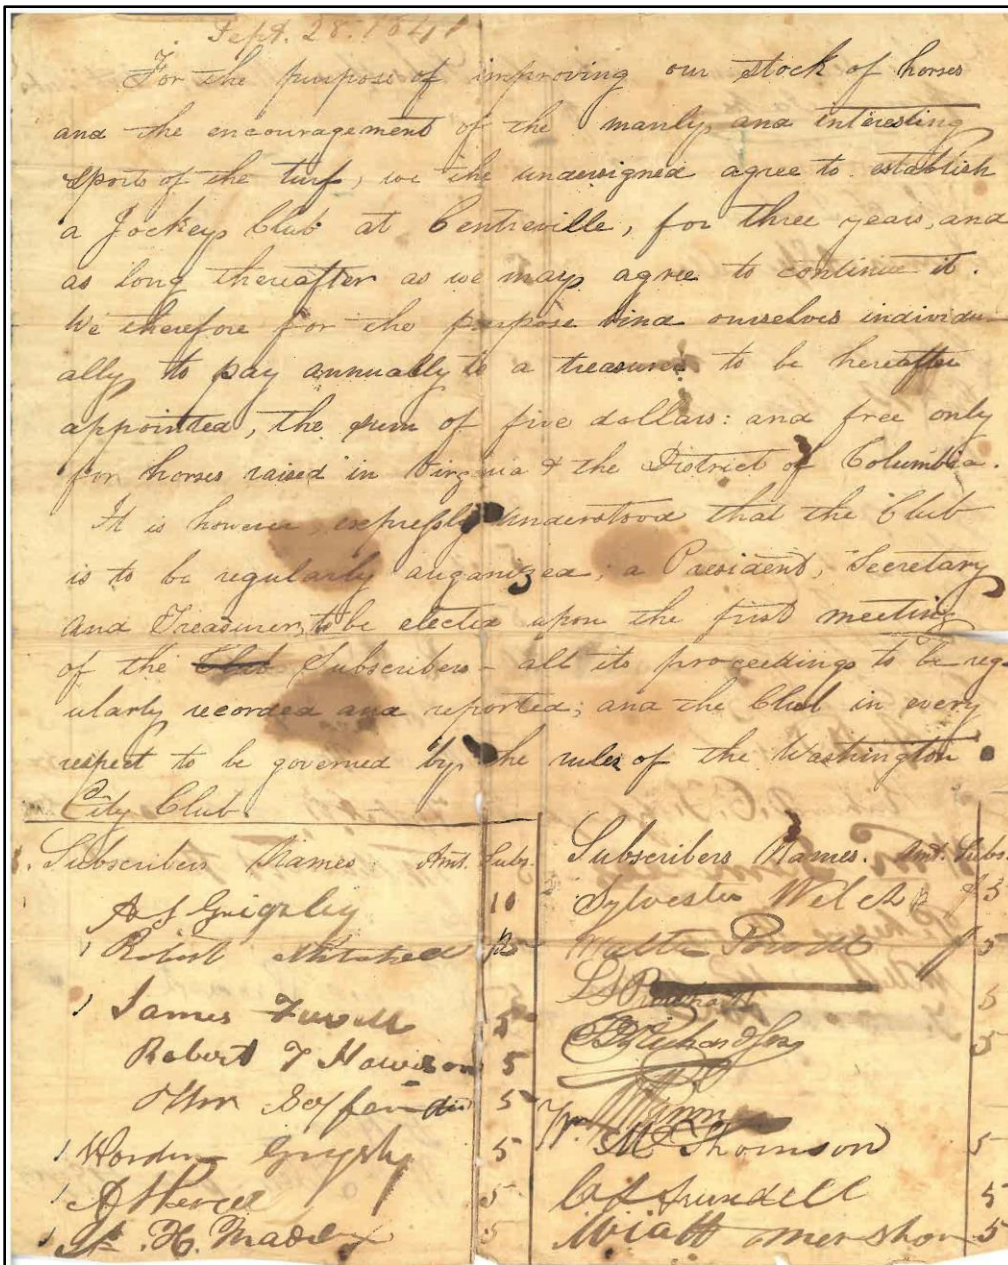 Sept. 28. 1841
For the purpose of improving our stock of horses
and the encouragement of the manly and interesting
sports of the turf, we the undersigned agree to establish
a Jockey Club at Centreville, for three years, and
as long thereafter as we may agree to continue it.
We therefore for the purpose bind ourselves individu-
ally to pay annually to a treasurer to be hereafter
appointed, the sum of five dollars: and free only
for horses raised in Virginia & the District of Columbia.
It is however expressly understood that the Club
is to be regularly organized; a President, Secretary
and Treasurer, to be elected upon the first meeting
of the Club Subscribers - all its proceedings to be reg-
ularly recorded and reported; and the Club in every
respect to be governed by the rules of the Washington
City Club.
Subscribers Names Amt. Subs.
A S Grigsby 10
1 Robert 5
1 James 5
Robert F Howison 5
5
1 Grigsby 5
1 5
1 H. 5
Subscribers Names. Amt. Subs.
Sylvester Welch 5
Powell 5
5
Richardson 5
Wm. M Thomson 5
5
Wiatt Mershon 5